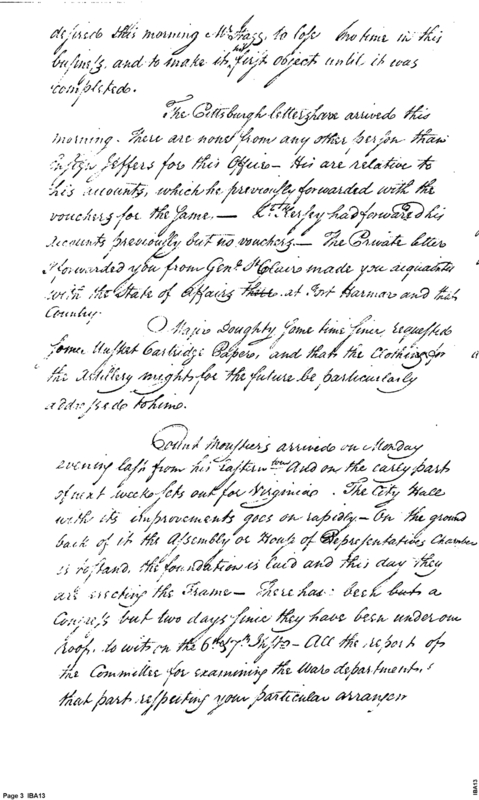 desired this morning Mr Frazs. to lose no time in this
business. and to make it his first object until it was
completed.
The Pittsburgh letters have arrived this
morning. There are none from any other person than
Ensign Jeffers for this Office — His are relative to
his accounts, which he previously forwarded with the
vouchers for the same. — Lt. Kersey had forwared his
Accounts previously but no vouchers — The Private letter
I forwarded you from Genl. St Clair made you acquainted
with the State of Affairs at Fort Harmar and that
Country.
Major Doughty some time since, requested
some Musket Cartridge Papers, and that the Clothing for
the Artillery might for the future be particularly
addressed to him.
Count Moustiers arrived on Monday
evening last from his Eastern tour And on the early part
of next week sets out for Virginia. The City Hall
with its improvements goes on rapidly — On the ground
back of it the Assembly or House of Representatives Chamber
is to stand. the foundation is laid and this day they
are erecting the Frame — There has been but a
Congress but two days since they have been under our
roof. to wit on the 6th & 7th Inst. — All the report of
the Committee for examining the War department,
that part respecting your particular arrangem
Page 3 IBA13
IBA13